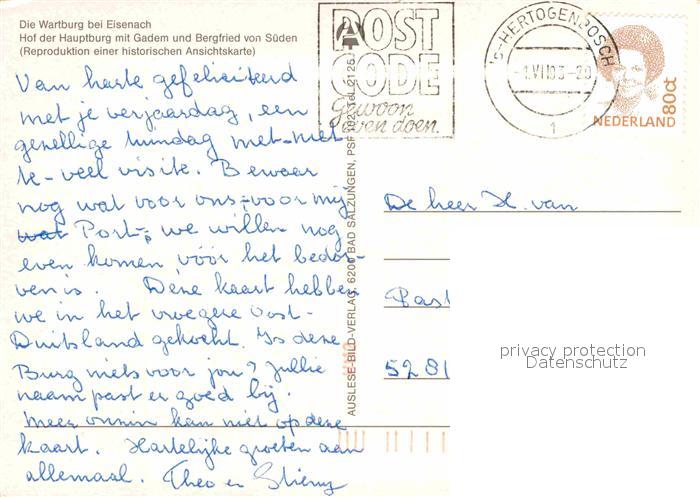 Die Wartburg bei Eisenach
Hof der Hauptburg mit Gadem und Bergfried von Süden
(Reproduktion einer historischen Ansichtskarte)
Van harte gefeliciteerd
met je verjaardag, een
gezellige zondag met-niet
te-veel visite. Bewaar
nog wat voor ons, voor mij
wat Port, we willen nog
even komen vóór het bedor-
ven is. Deze kaart hebben
we in het vroegere Oost-
Duitsland gekocht. Is deze
Burg niets voor jou? Jullie
naam past er goed bij.
Meer onzin kan niet op deze
kaart. Hartelijke groeten aan
allemaal. Theo en
AUSLESE-BILD-VERLAG, 6200 BAD SALZUNGEN, PSF
POST
CODE
Gewoon
even doen.
's-HERTOGENBOSCH
1
80ct
NEDERLAND
De heer H. van
Past
5281
privacy protection
Datenschutz